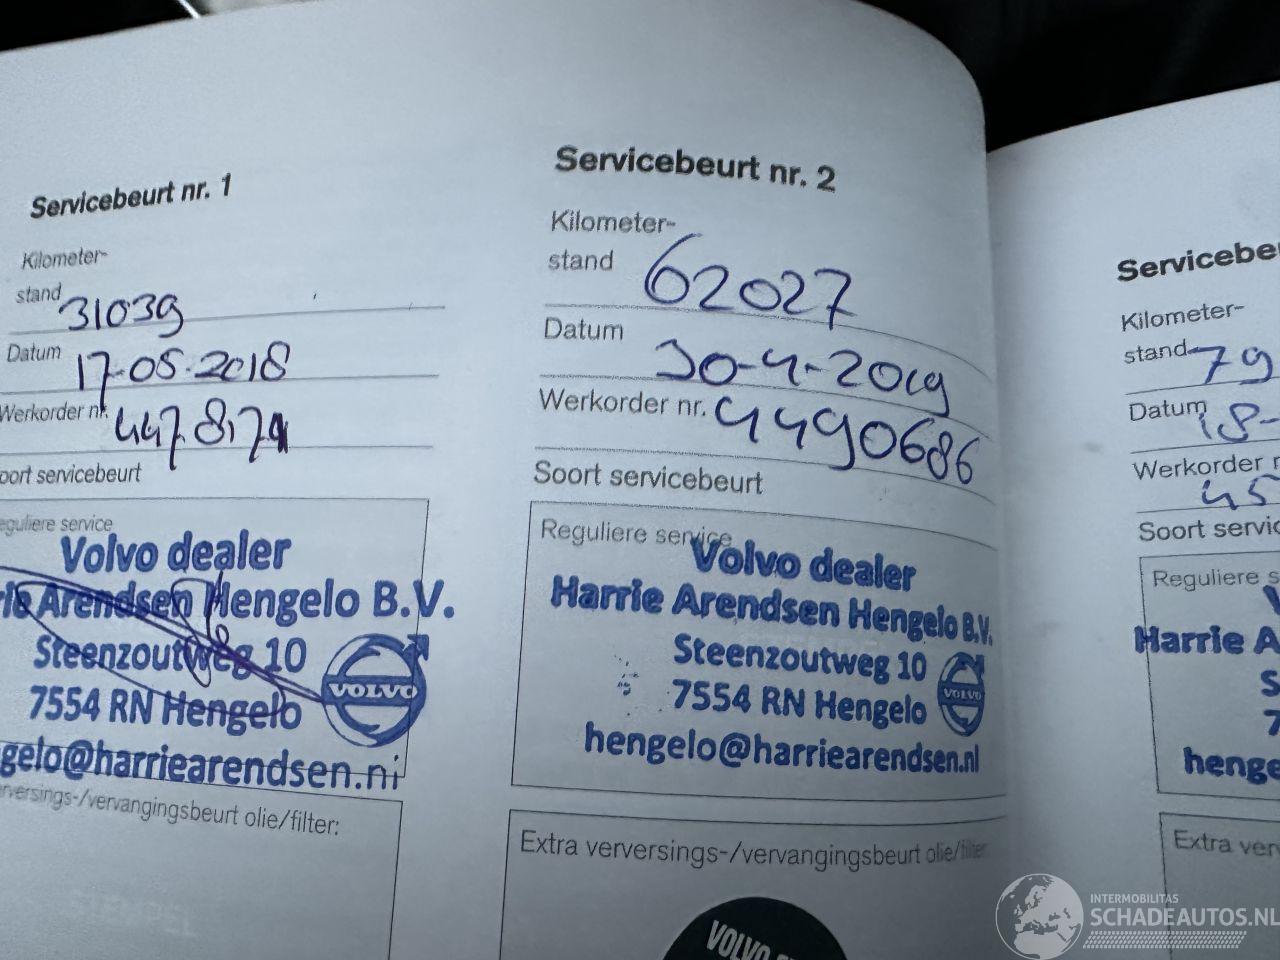 Servicebeurt nr. 1
Kilometer-
stand 31039
Datum 17-05-2018
Werkorder nr.
servicebeurt
service
Volvo dealer
Arendsen Hengelo B.V.
Steenzoutweg 10
7554 RN Hengelo
VOLVO
@harriearendsen.nl
olie/filter:
Servicebeurt nr. 2
Kilometer-
stand 62027
Datum 30-4-2019
Werkorder nr. 4490686
Soort servicebeurt
Reguliere service
Volvo dealer
Harrie Arendsen Hengelo B.V.
Steenzoutweg 10
7554 RN Hengelo
VOLVO
hengelo@harriearendsen.nl
Extra verversings-/vervangingsbeurt olie/filter
VOLVO
Kilometer-
stand 79
Datum 18-
Werkorder
45
Soort
Reguliere
Harrie
INTERMOBILITAS
SCHADEAUTOS.NL